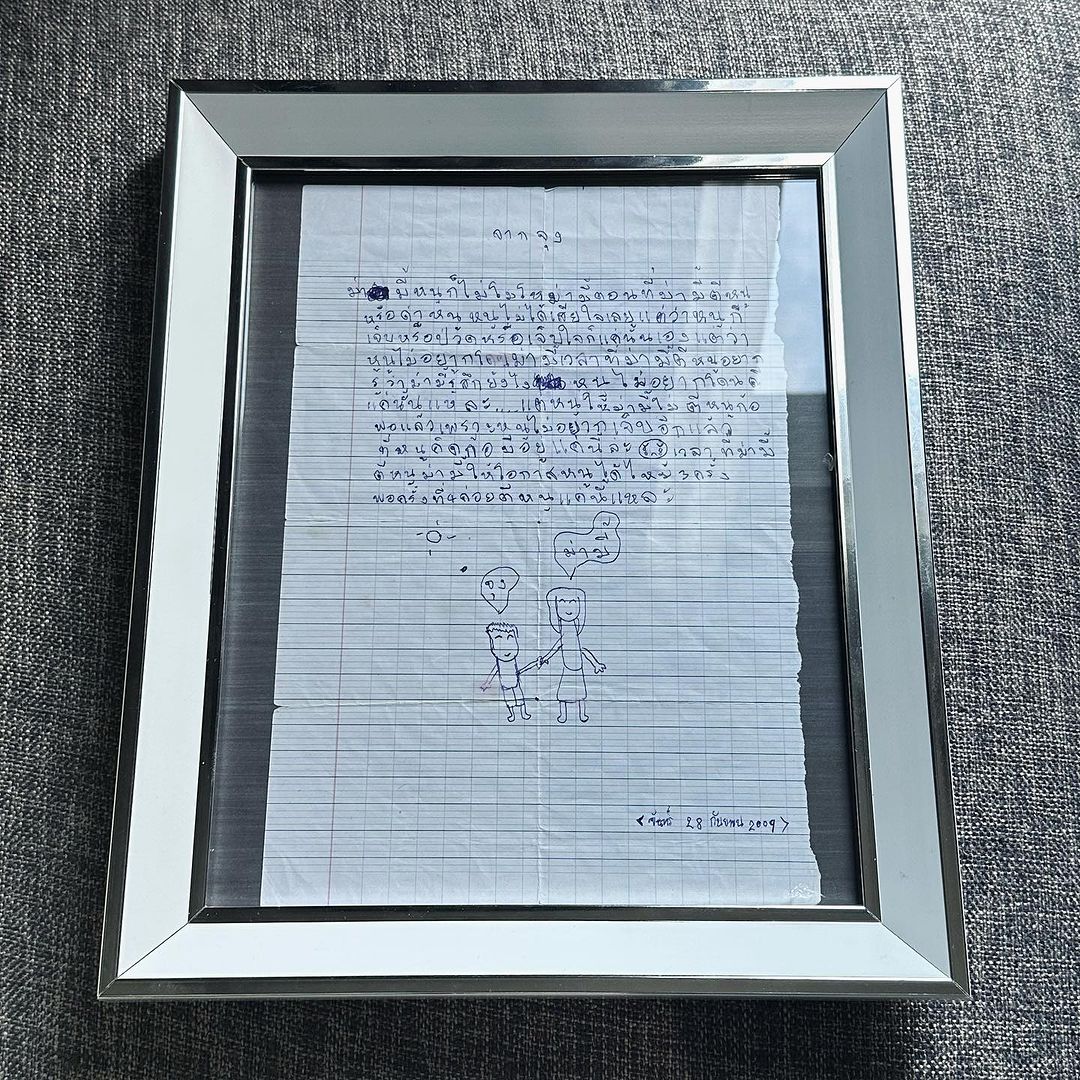 จากจุง
ม่ามี้หนูก็ไม่โมโหม่ามี้ตอนที่ม่ามี้ตีหนู
หรือด่าหนู หนูไม่ได้เสียใจเลยแต่ว่าหนูก็
เจ็บหรือปวดหรือเจ็บใจก็แค่นั้นเองแต่ว่า
หนูไม่อยาก เวลาที่ม่ามี้ตีหนูอยาก
รู้ว่าม่ามี้รู้สึกยังไง หนูไม่อยากโดนตี
แค่นั้นแหละ.....แต่หนูให้ม่ามี้ไม่ตีหนูก้อ
พอแล้วเพราะหนูไม่อยากเจ็บอีกแล้ว
ที่หนูคิดก้อมีอยู่แค่นี้ล่ะ เวลาที่ม่ามี้
ตีหนูม่ามี้ให้โอกาสหนูได้ไหม้ 3 ครั้ง
พอครั้งที่ 4 ค่อยตีหนูแค่นี้แหละ
ม่ามี้
จุง
<จันทร์ 28 กันยายน 2009>